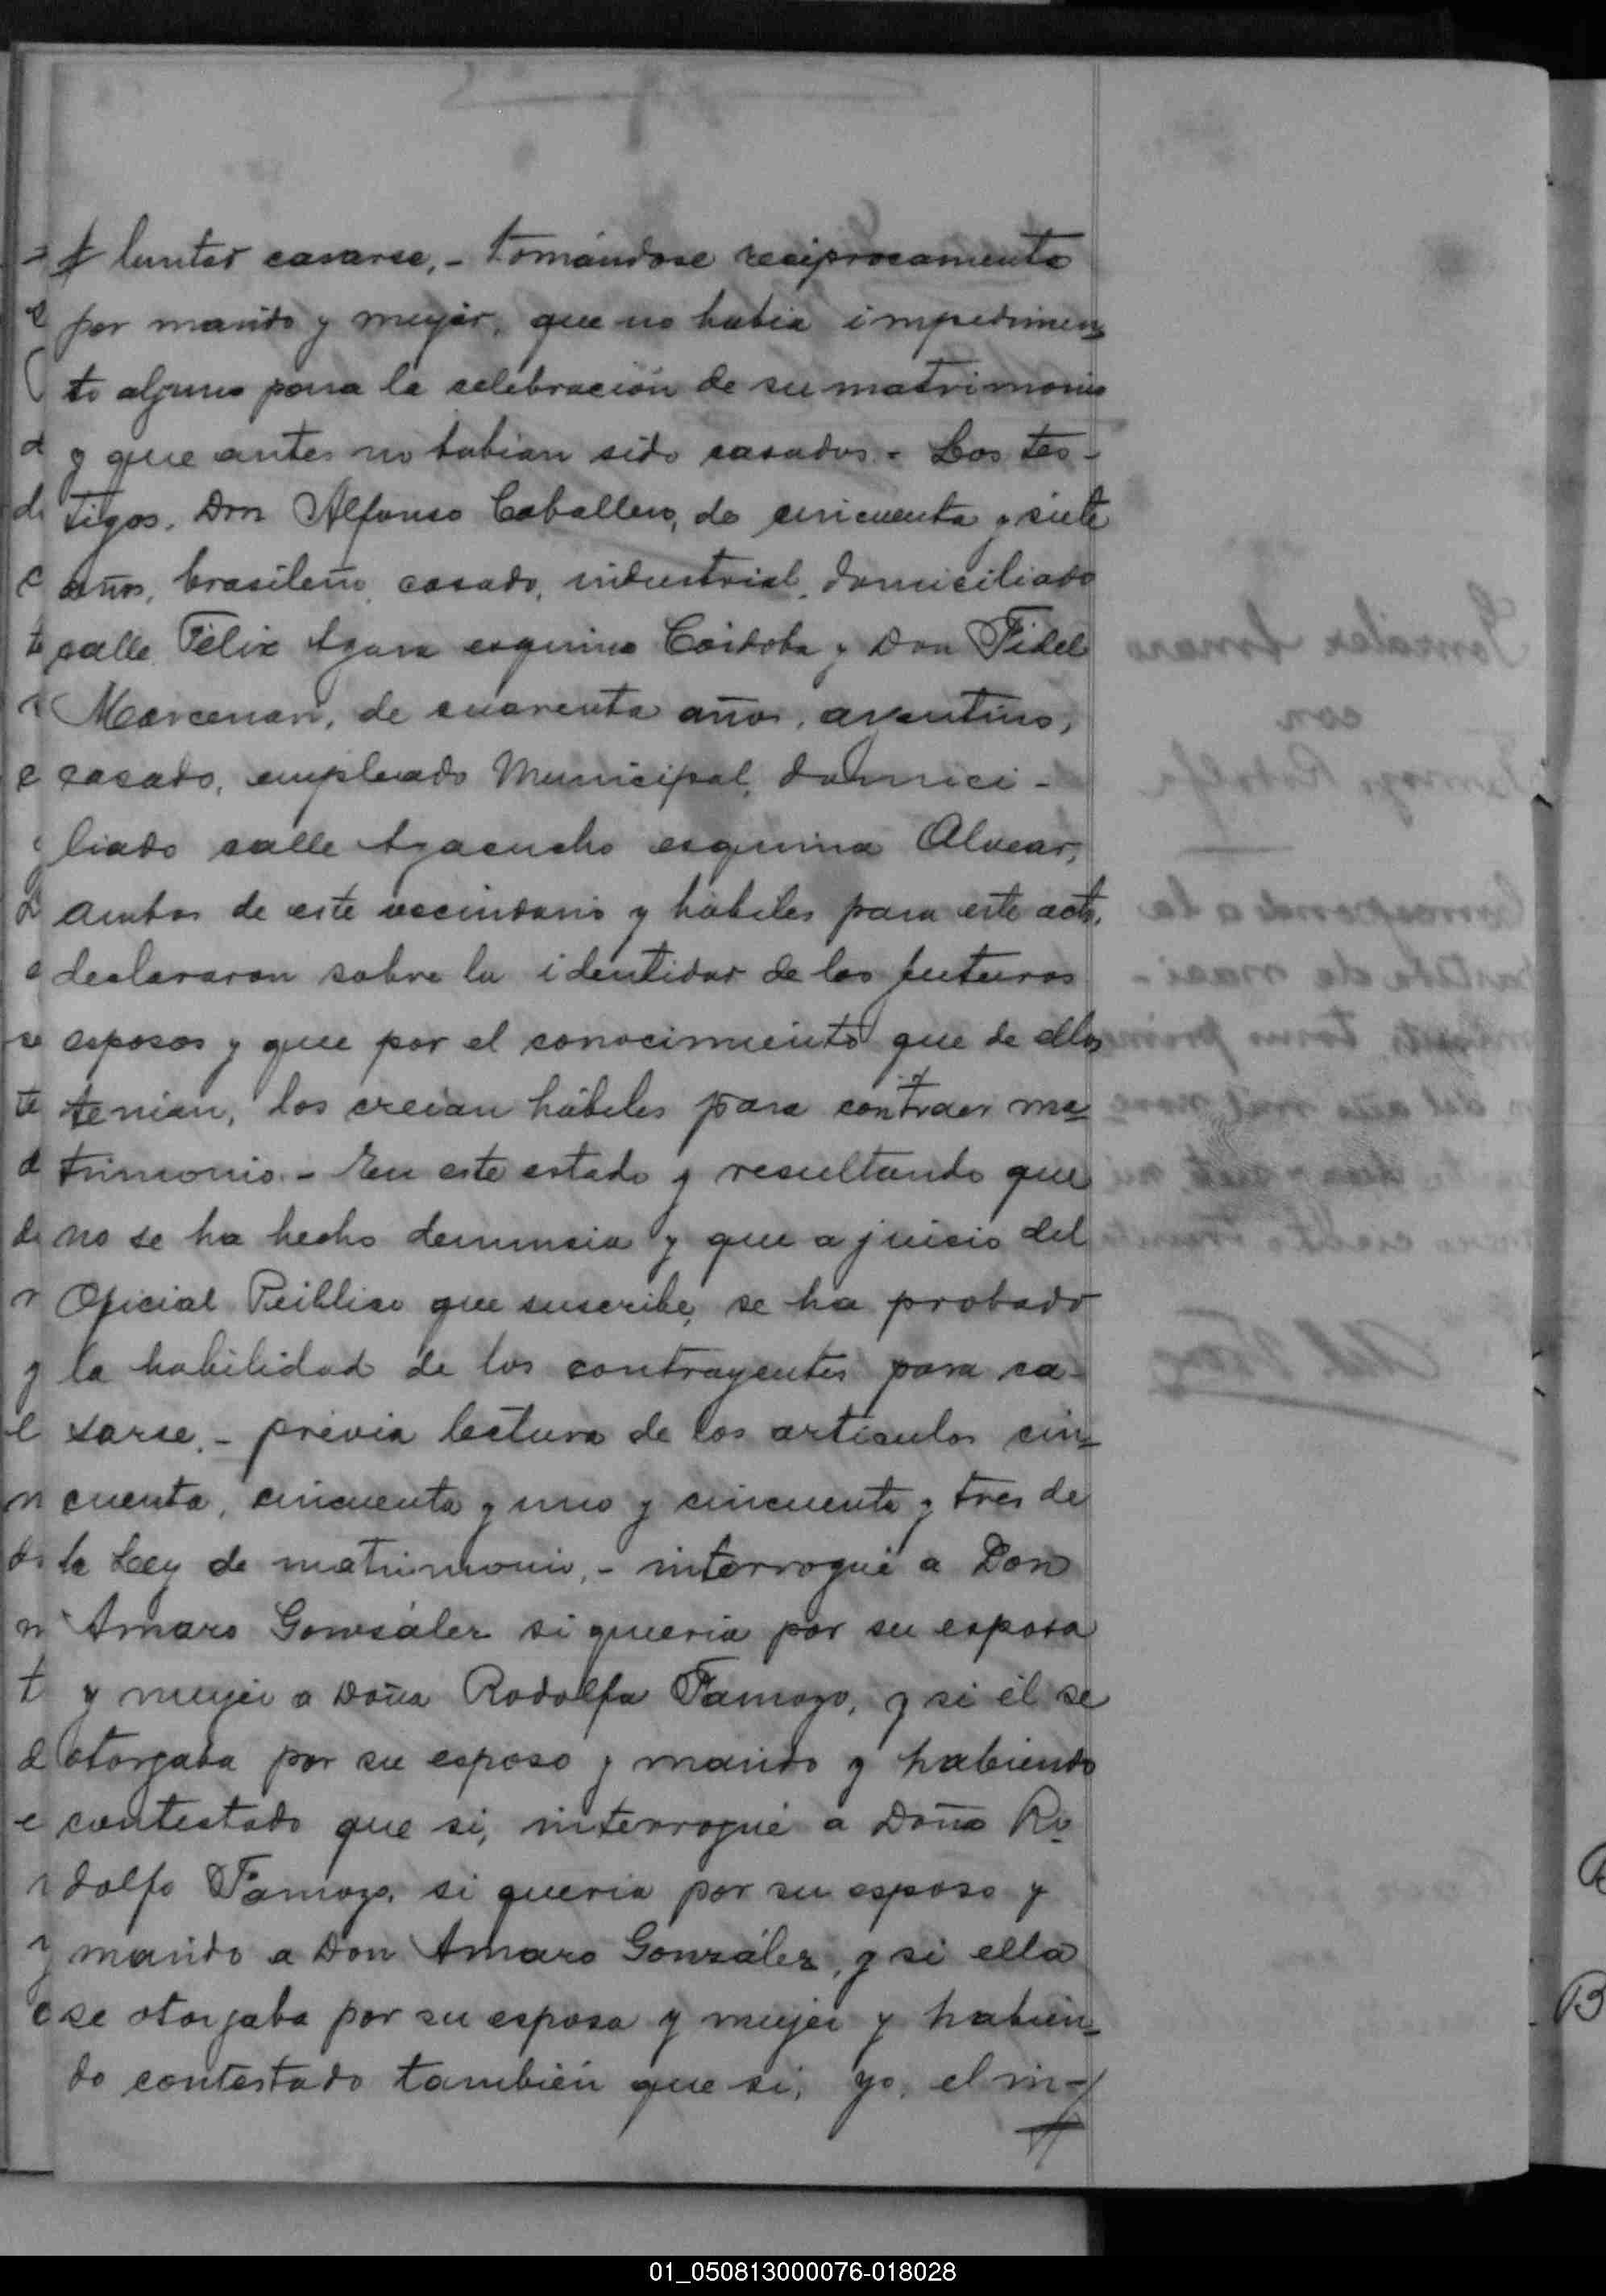 luntad casarse, - tomándose reciprocamente
por marido y mujer, que no había impedimen=
to alguno para la celebración de su matrimonio
y que antes no habian sido casados - Los tes-
tigos, Don Alfonso Caballero, de cincuenta y siete
años, brasileño, casado, industrial, domiciliado
calle Félix Azara esquina Córdoba y Don Fidel
de cuarenta años, argentino,
casado, empleado Municipal, domici-
liado calle Ayacucho esquina Alvear,
ambos de este vecindario y hábiles para este acto,
declararon sobre la identidad de los futuros
esposos y que por el conocimiento que de ellos
tenian, los creian hábiles para contraer ma=
trimonio. - En este estado y resultando que
no se ha hecho denuncia y que a juicio del
Oficial Público que suscribe, se ha probado
la habilidad de los contrayentes para ca-
sarse. - previa lectura de los artículos cin=
cuenta, cincuenta y uno y cincuenta y tres de
la Ley de matrimonio, - interrogué a Don
Amaro Gonzáles si queria por su esposa
y mujer a Doña Rodolfa Tamozo, y si él se
otorgaba por su esposo y marido y habiendo
contestado que si, interrogué a Doña Ro=
dolfa Tamozo, si queria por su esposo y
marido a Don Amaro González, y si ella
se otorgaba por su esposa y mujer y habien=
do contestado también que si, yo, el in-
01_050813000076-018028